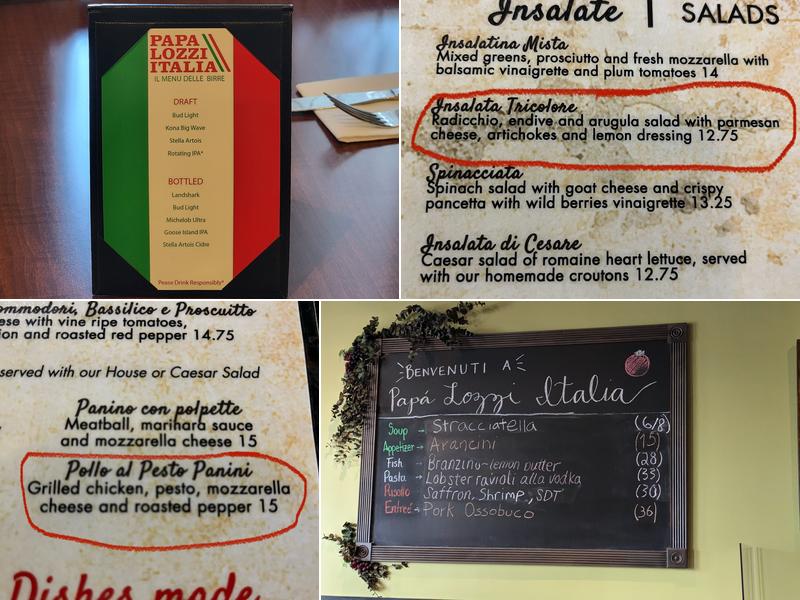 PAPA
LOZZI
ITALIA
IL MENU DELLE BIRRE
DRAFT
Bud Light
Kona Big Wave
Stella Artois
Rotating IPA*
BOTTLED
Landshark
Bud Light
Michelob Ultra
Goose Island IPA
Stella Artois Cidre
Pease Drink Responsibly*
Insalate | SALADS
Insalatina Mista
Mixed greens, prosciutto and fresh mozzarella with
balsamic vinaigrette and plum tomatoes 14
Insalata Tricolore
Radicchio, endive and arugula salad with parmesan
cheese, artichokes and lemon dressing 12.75
Spinacciata
Spinach salad with goat cheese and crispy
pancetta with wild berries vinaigrette 13.25
Insalata di Cesare
Caesar salad of romaine heart lettuce, served
with our homemade croutons 12.75
ommodori, Bassilico e Proscuitto
ese with vine ripe tomatoes,
ion and roasted red pepper 14.75
served with our House or Caesar Salad
Panino con polpette
Meatball, marinara sauce
and mozzarella cheese 15
Pollo al Pesto Panini
Grilled chicken, pesto, mozzarella
cheese and roasted pepper 15
Dishes made
BENVENUTI A
Papá Lozzi Italia
Soup → Stracciatella (6/8)
Appetizer → Arancini (15)
Fish → Branzino-lemon butter (28)
Pasta → Lobster ravioli alla vodka (33)
Risotto → Saffron, Shrimp, SDT (30)
Entreé → Pork Ossobuco (36)